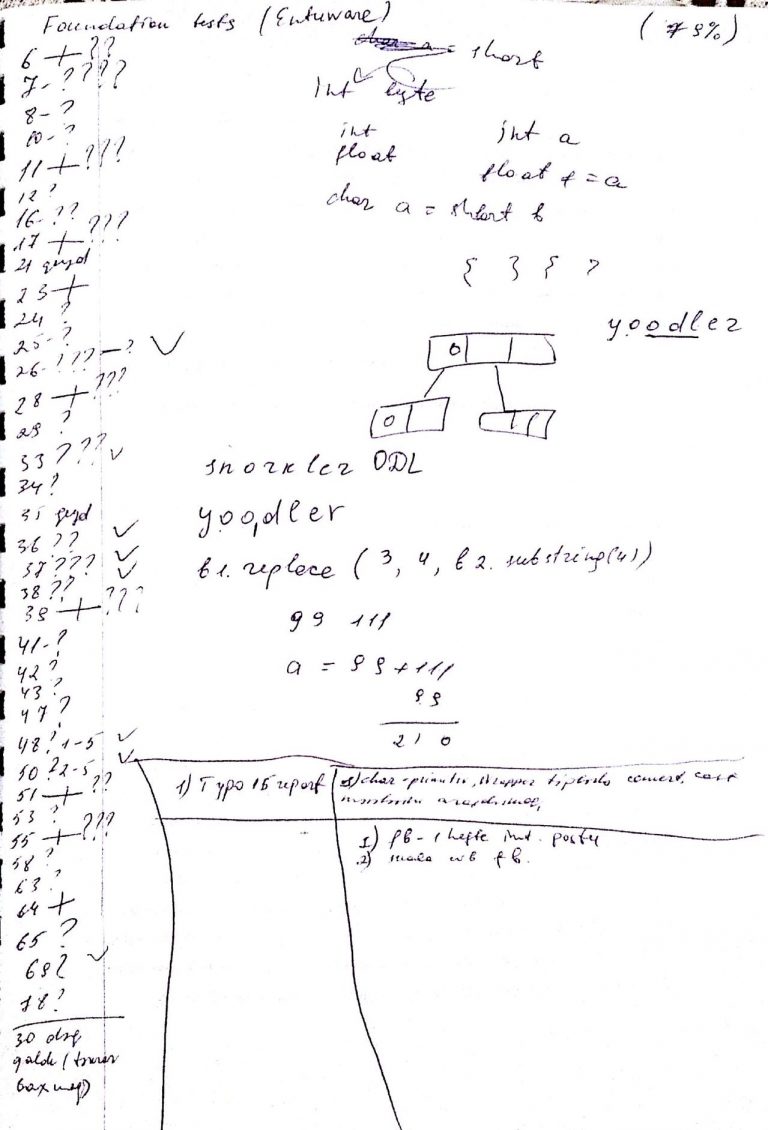 Foundation tests (Entuware) (79%)
6 + ??
7- ????
8- ?
10- ?
11 + ???
12 ?
16- ??
17 + ???
21 qeyd
23 +
24 ?
25- ?
26- ??? - ?
28 + ???
29 ?
33 ???
34 ?
35 qeyd
36 ??
37 ???
38 ??
39 + ???
41- ?
42 ?
43 ?
47 ?
48 ? 1-5
50 ? 2-5
51 + ??
53 ?
55 + ???
58 ?
63 ?
64 +
65 ?
69 ?
78 ?
30 dəq
qaldı
= short
int byte
int int a
float float f = a
char a = short b
{ } { ?
yoodler
0
0
snorkler ODL
yoodler
b1. replace ( 3, 4, b2. substring(4))
99 111
a = 99 + 111
99
210
1) Typo 15 report
1) fb - 1 hefte int. postu
2)